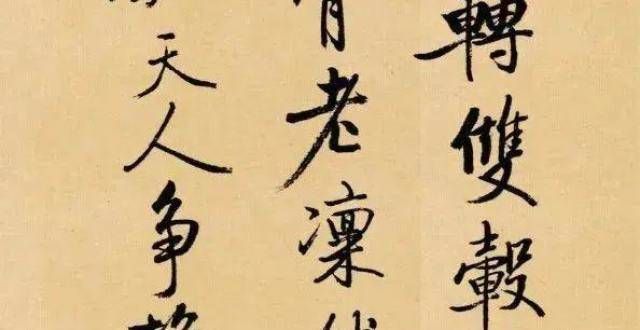 轉雙轂
老凜
天人争